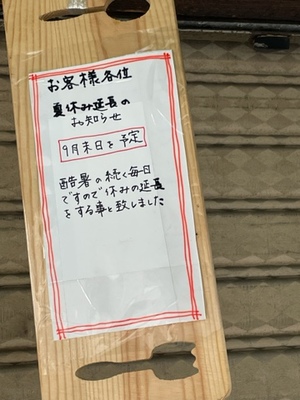 お客様各位
夏休み延長の
お知らせ
9月末日を予定
酷暑の続く毎日
ですので休みの延長
をする事と致しました